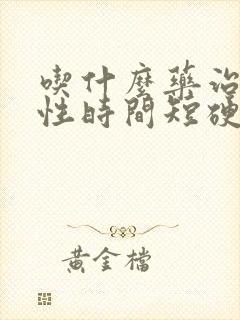 喫什麼藥治
性時間短硬
黃金檔